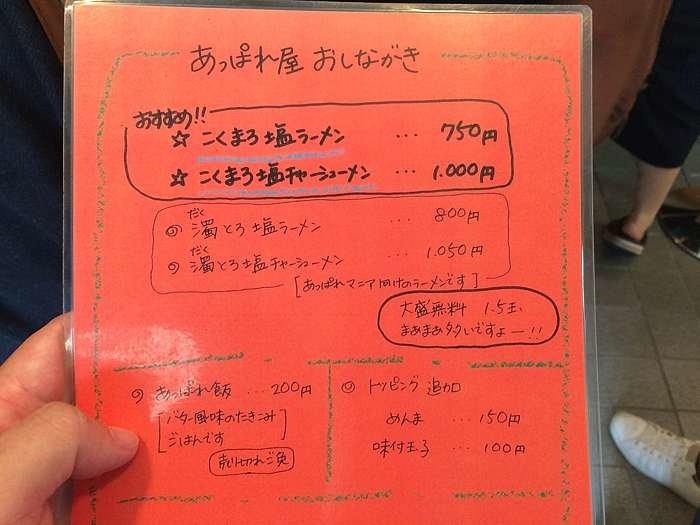 あっぱれ屋 おしながき
おすすめ!!
☆ こくまろ塩ラーメン … 750円
☆ こくまろ塩チャーシューメン … 1.000円
だく
◎ 濁とろ塩ラーメン … 800円
だく
◎ 濁とろ塩チャーシューメン … 1.050円
[あっぱれマニア向けのラーメンです]
大盛無料 1.5玉
まあまあ多いですよー!!
◎ あっぱれ飯 … 200円
[バター風味のたきこみ
ごはんです]
売り切れご免
◎ トッピング 追加
めんま … 150円
味付玉子 … 100円